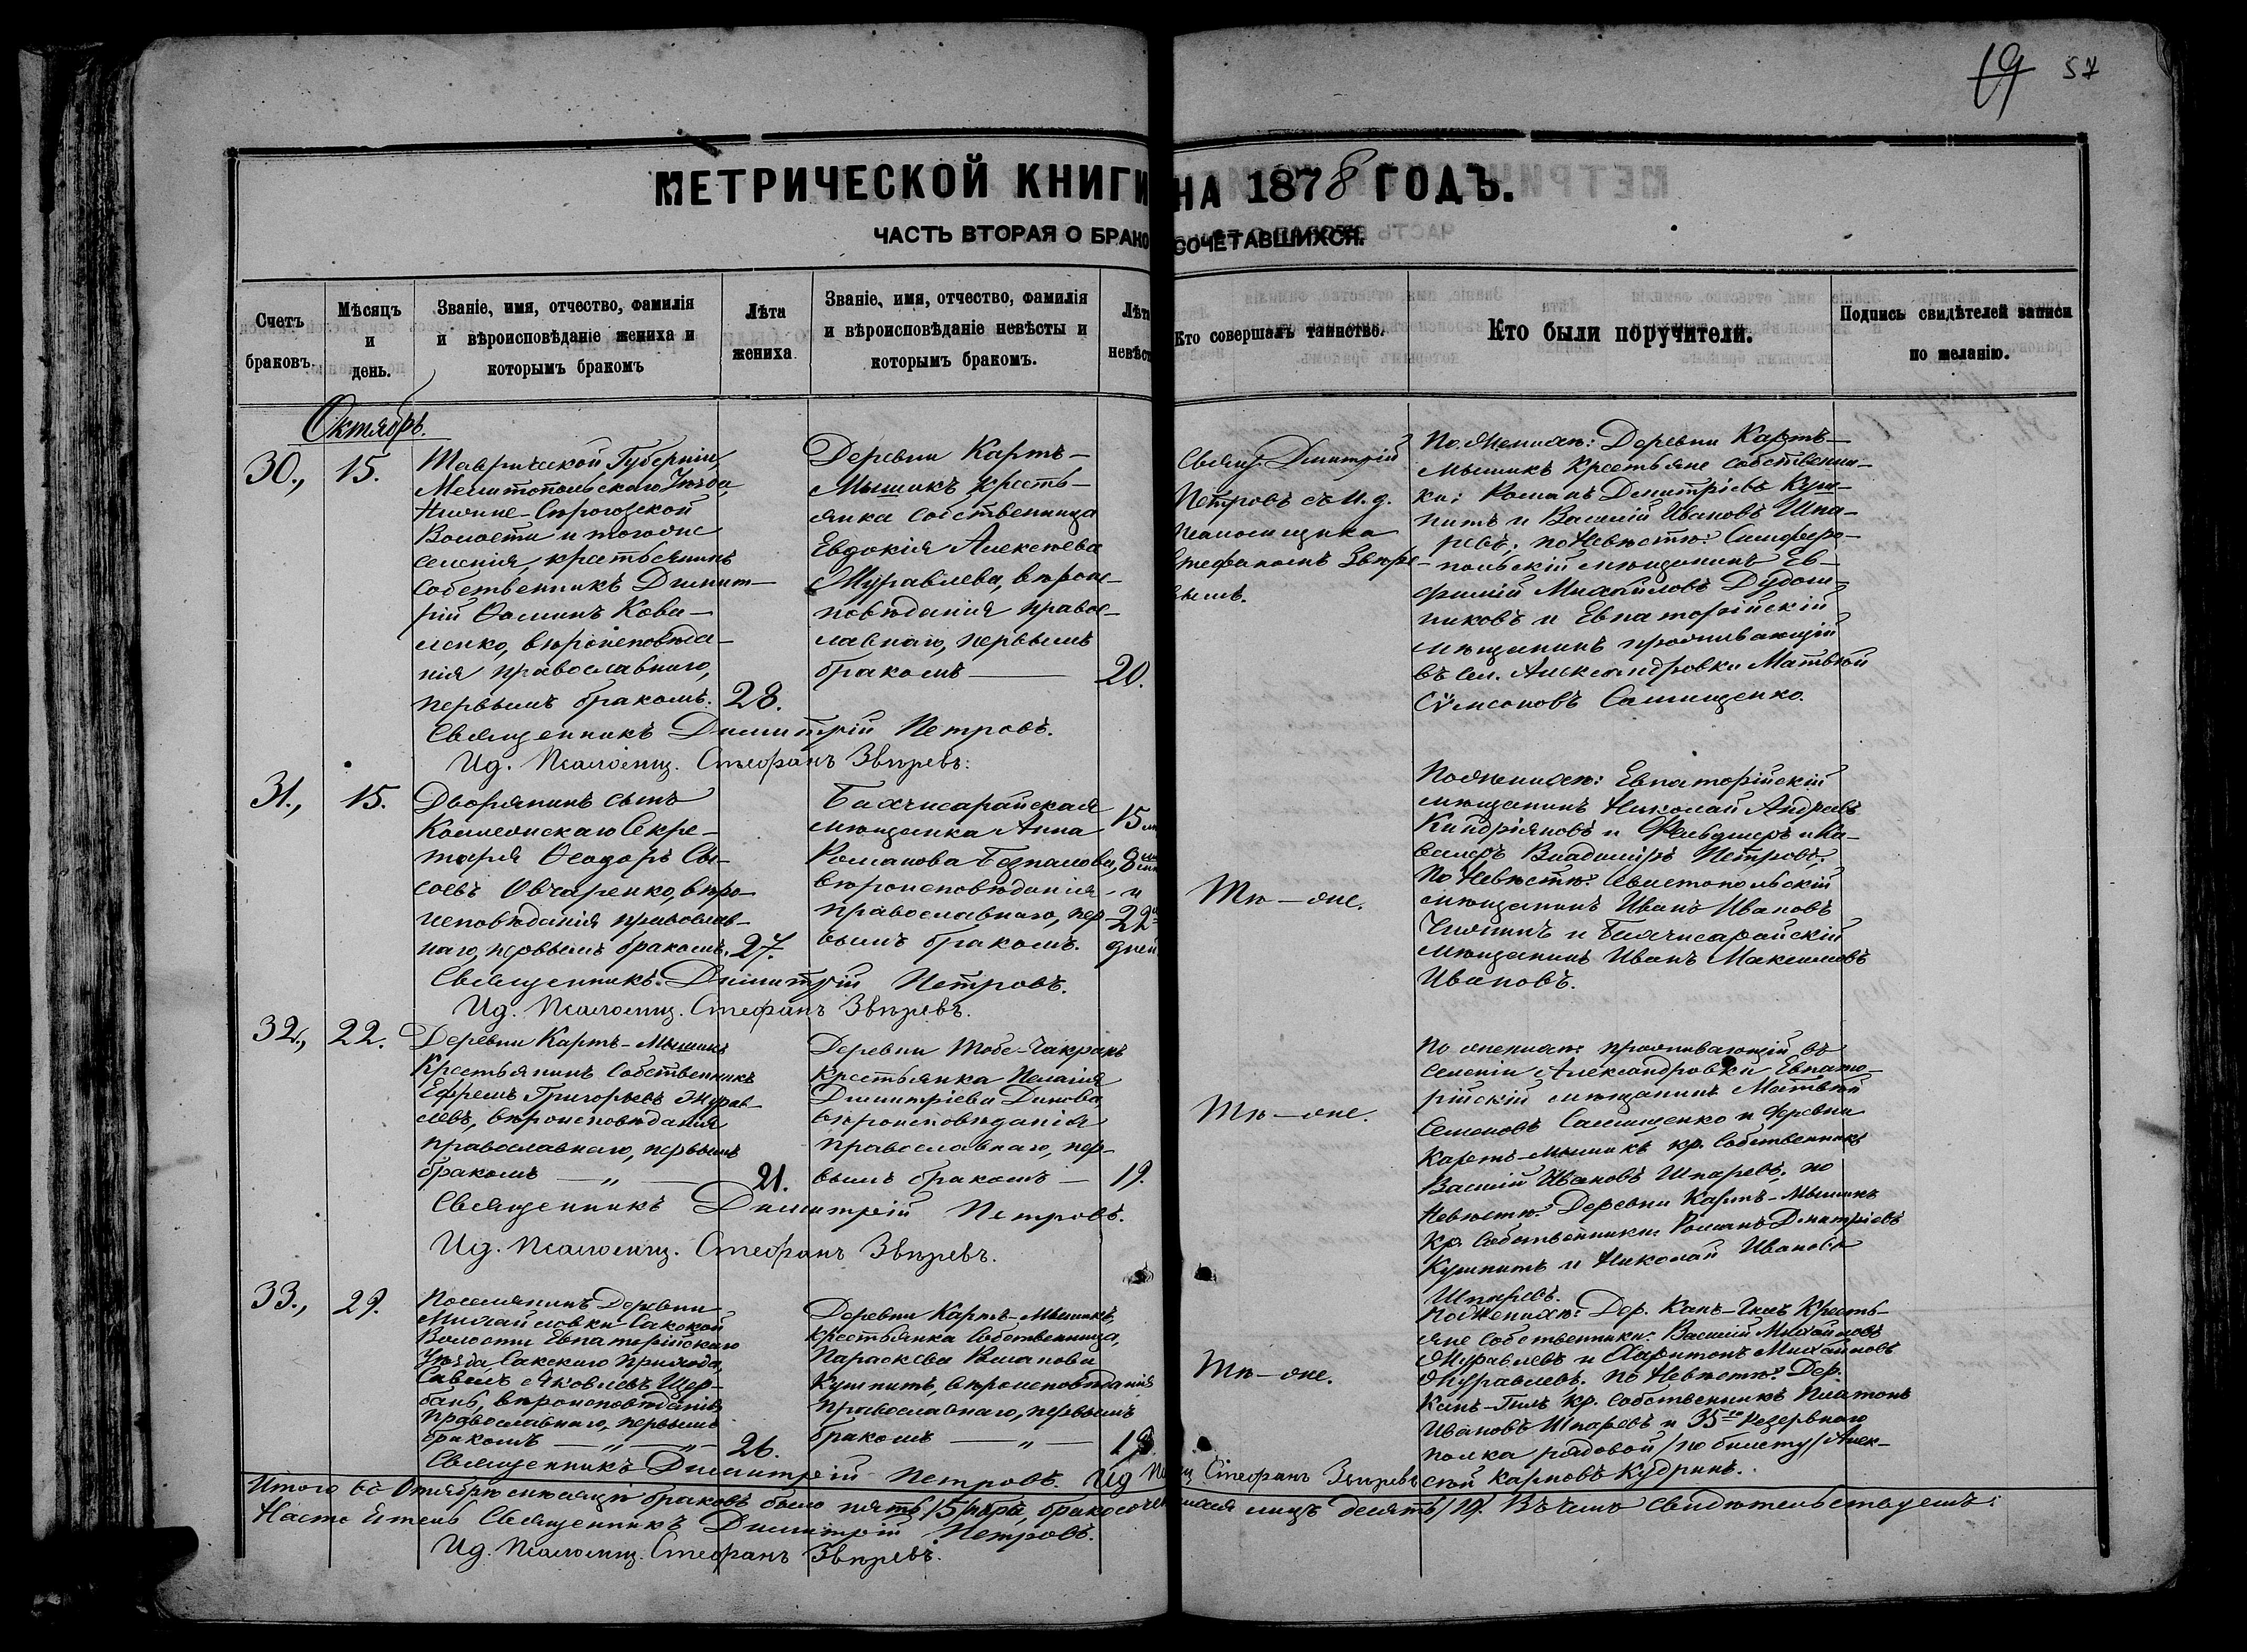 19 57
МЕТРИЧЕСКОЙ КНИГИ НА 1878 ГОДЪ.
ЧАСТЬ ВТОРАЯ О БРАКОСОЧЕТАВШИХСЯ.
Счетъ
браковъ.
Мѣсяцъ
и
день.
Званіе, имя, отчество, фамилія
и вѣроисповѣданіе жениха и
которымъ бракомъ
Лѣта
жениха.
Званіе, имя, отчество, фамилія
и вѣроисповѣданіе невѣсты и
которымъ бракомъ.
Лѣт
невѣст
Кто совершалъ таинство.
Кто были поручители.
Подпись свидѣтелей записи
по желанію.
Октябрь.
30., 15.
Таврической Губерніи,
Мелитопольскаго Уѣзда,
Нижне-Сѣрогозской
Волости и тогоже
селенія, крестьянинъ
собственникъ Димит-
рій Ѳоминъ Кова-
ленко, вѣроисповѣда-
нія православнаго,
первымъ бракомъ. 28.
Деревни Картъ-
Мышикъ кресть-
янка собственница
Евдокія Алексѣева
Журавлева, вѣроис-
повѣданія правос-
лавнаго, первымъ
бракомъ — 20.
Священникъ Димитрій Петровъ.
Ид. Псаломщ. Стефанъ Звѣревъ.
Свящ. Димитрій
Петровъ съ и. д.
Псаломщика
Стефаномъ Звѣре-
вымъ.
По женихѣ: Деревни Картъ-
Мышикъ крестьяне собственни-
ки: Романъ Димитріевъ Куш-
нитъ и Василій Ивановъ Шпа-
ревъ; по Невѣстѣ: Симферо-
польскій мѣщанинъ Ев-
фимій Михайловъ
и Евпаторійскій
мѣщанинъ проживающій
въ сел. Александровки Матвѣй
Сѵмсоновъ Самищенко.
31., 15.
Дворянинъ сынъ
Коллежскаго Секре-
таря Ѳеодоръ Сы-
соевъ Овчаренко, вѣро-
исповѣданія православ-
наго, первымъ бракомъ. 27.
Бахчисарайская
мѣщанка Анна
Романова
вѣроисповѣданія
православнаго, пер-
вымъ бракомъ.
15
8
и
22
дней
Священникъ Димитрій Петровъ.
Ид. Псаломщ. Стефанъ Звѣревъ.
Тѣ-же.
По женихѣ: Евпаторійскій
мѣщанинъ Николай Андреевъ
Киндріяновъ и Фельдшеръ и Ка-
валеръ Владиміръ Петровъ;
По Невѣстѣ: Севастопольскій
мѣщанинъ Иванъ Ивановъ
и Бахчисарайскій
мѣщанинъ Иванъ Максимовъ
Ивановъ.
32., 22.
Деревни Картъ-Мышикъ
Крестьянинъ Собственникъ
Ефремъ Григорьевъ Журав-
левъ, вѣроисповѣданія
православнаго, первымъ
бракомъ — " — 21.
Деревни Тобе-Чакракъ
крестьянка Пелагія
Димитріева Динова,
вѣроисповѣданія
православнаго, пер-
вымъ бракомъ — 19.
Священникъ Димитрій Петровъ.
Ид. Псаломщ. Стефанъ Звѣревъ.
Тѣ-же.
По женихѣ: проживающій въ
селеніи Александровки Евпато-
рійскій мѣщанинъ Матвѣй
Семеновъ Самищенко и деревни
Картъ-Мышикъ кр. Собственникъ
Василій Ивановъ Шпаревъ; по
Невѣстѣ: Деревни Картъ-Мышикъ
Кр. Собственники: Романъ Димитріевъ
Кушнитъ и Николай Ивановъ
Шпаревъ.
33., 29.
Поселянинъ Деревни
Михайловки Сакской
Волости Евпаторійскаго
Уѣзда Сакскаго прихода,
Савелъ Яковлевъ Щер-
бань, вѣроисповѣданія
православнаго, первымъ
бракомъ — " — " — 26.
Деревни Картъ-Мышикъ,
крестьянка Собственница,
Параскева Романова
Кушнитъ, вѣроисповѣданія
православнаго, первымъ
бракомъ — " —
Священникъ Димитрій Петровъ. Ид. Пс щ Стефанъ Звѣревъ
Тѣ-же.
По женихѣ: Дер. Капъ- Кресть-
яне собственники: Василій Михайловъ
Журавлевъ и Харитонъ Михайловъ
Журавлевъ. По Невѣстѣ: Дер.
кр. собственникъ Платонъ
Ивановъ Шпаревъ и 35го Резервнаго
полка рядовой /по билету/ Алек-
сѣй Карповъ Кудринъ.
Итого въ Октябрѣ мѣсяцѣ браковъ было пять /5 паръ, бракосочет шихся лицъ десять /10/. Въ чемъ свидѣтельствуемъ:
Настоятель Священникъ Димитрій Петровъ.
Ид. Псаломщ. Стефанъ Звѣревъ.